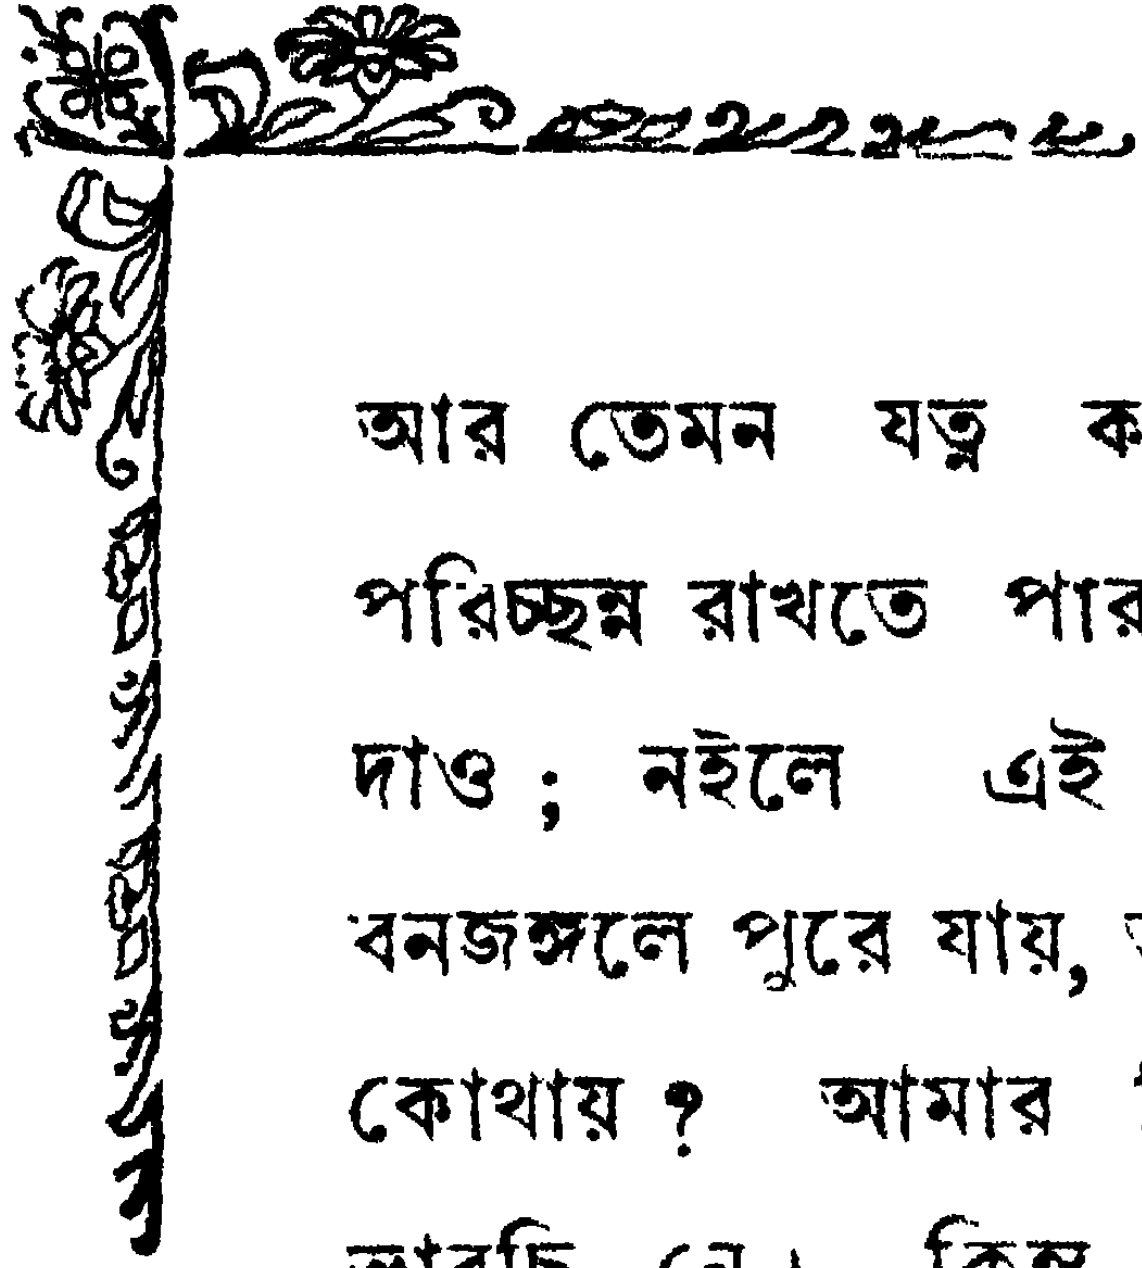 আর তেমন যত্ন ক
পরিচ্ছন্ন রাখতে পার
দাও ; নইলে এই
বনজঙ্গলে পুরে যায়,
কোথায় ? আমার